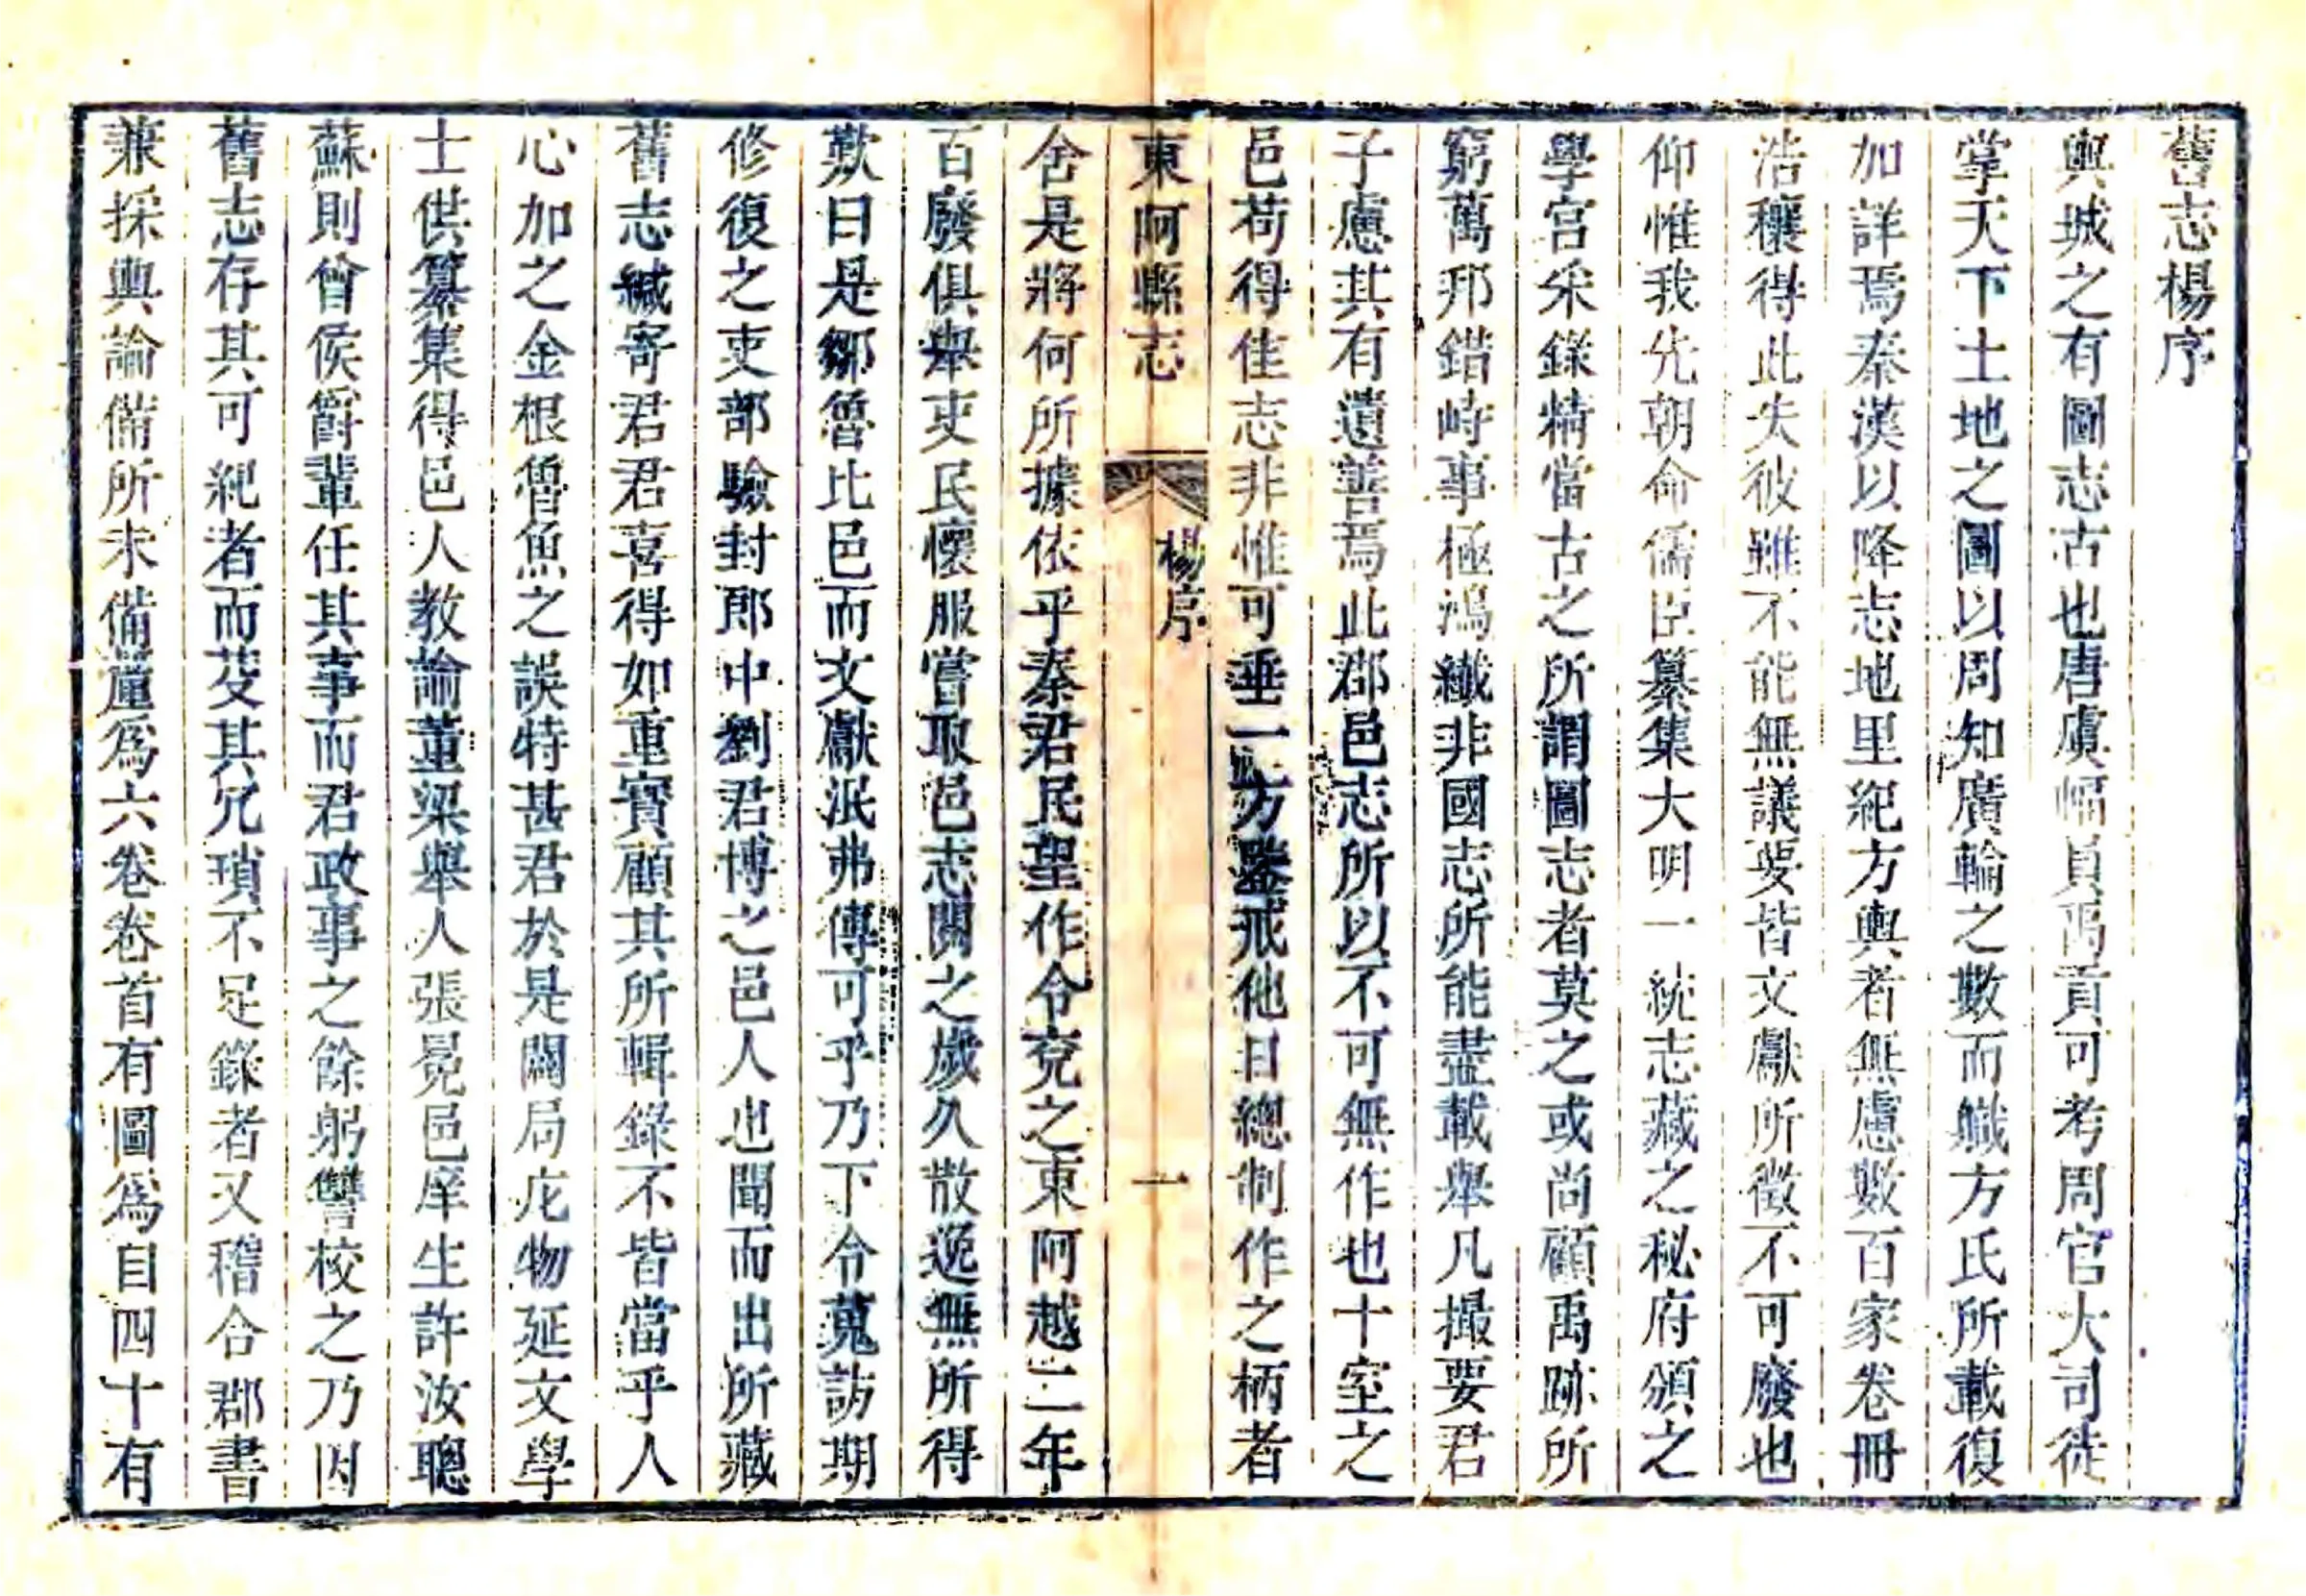 舊志楊序
輿城之有圖志古也唐虞幅員禹貢可考周官大司徒
掌天下土地之圖以周知廣輪之數而職方氏所載復
加詳焉秦漢以降志地里紀方輿者無慮數百家卷冊
浩穰得此失彼雖不能無議要皆文獻所徵不可廢也
仰惟我先朝命儒臣纂集大明一統志藏之秘府頒之
學宮采錄精當古之所謂圖志者莫之或尚顧禹跡所
窮萬邦錯峙事極鴻纖非國志所能盡載舉凡撮要君
子慮其有遺善焉此郡邑志所以不可無作也十室之
邑苟得佳志非惟可垂一方鑒戒他日總制作之柄者
東阿縣志
楊序
一
舍是將何所據依乎秦君民望作令兗之東阿越二年
百廢俱舉吏民懷服嘗取邑志閱之歲久散逸無所得
歎曰是鄒魯比邑而文獻泯弗傳可乎乃下令蒐訪期
修復之吏部驗封郎中劉君博之邑人也聞而出所藏
舊志緘寄君君喜得如重寶顧其所輯錄不皆當乎人
心加之金根魯魚之誤特甚君於是闢局庀物延文學
士供纂集得邑人教諭董梁舉人張冕邑庠生許汝聰
蘇則曾侯爵輩任其事而君政事之餘躬讐校之乃因
舊志存其可紀者而芟其冗瑣不足錄者又稽合郡書
兼採輿論備所未備釐為六卷卷首有圖為目四十有